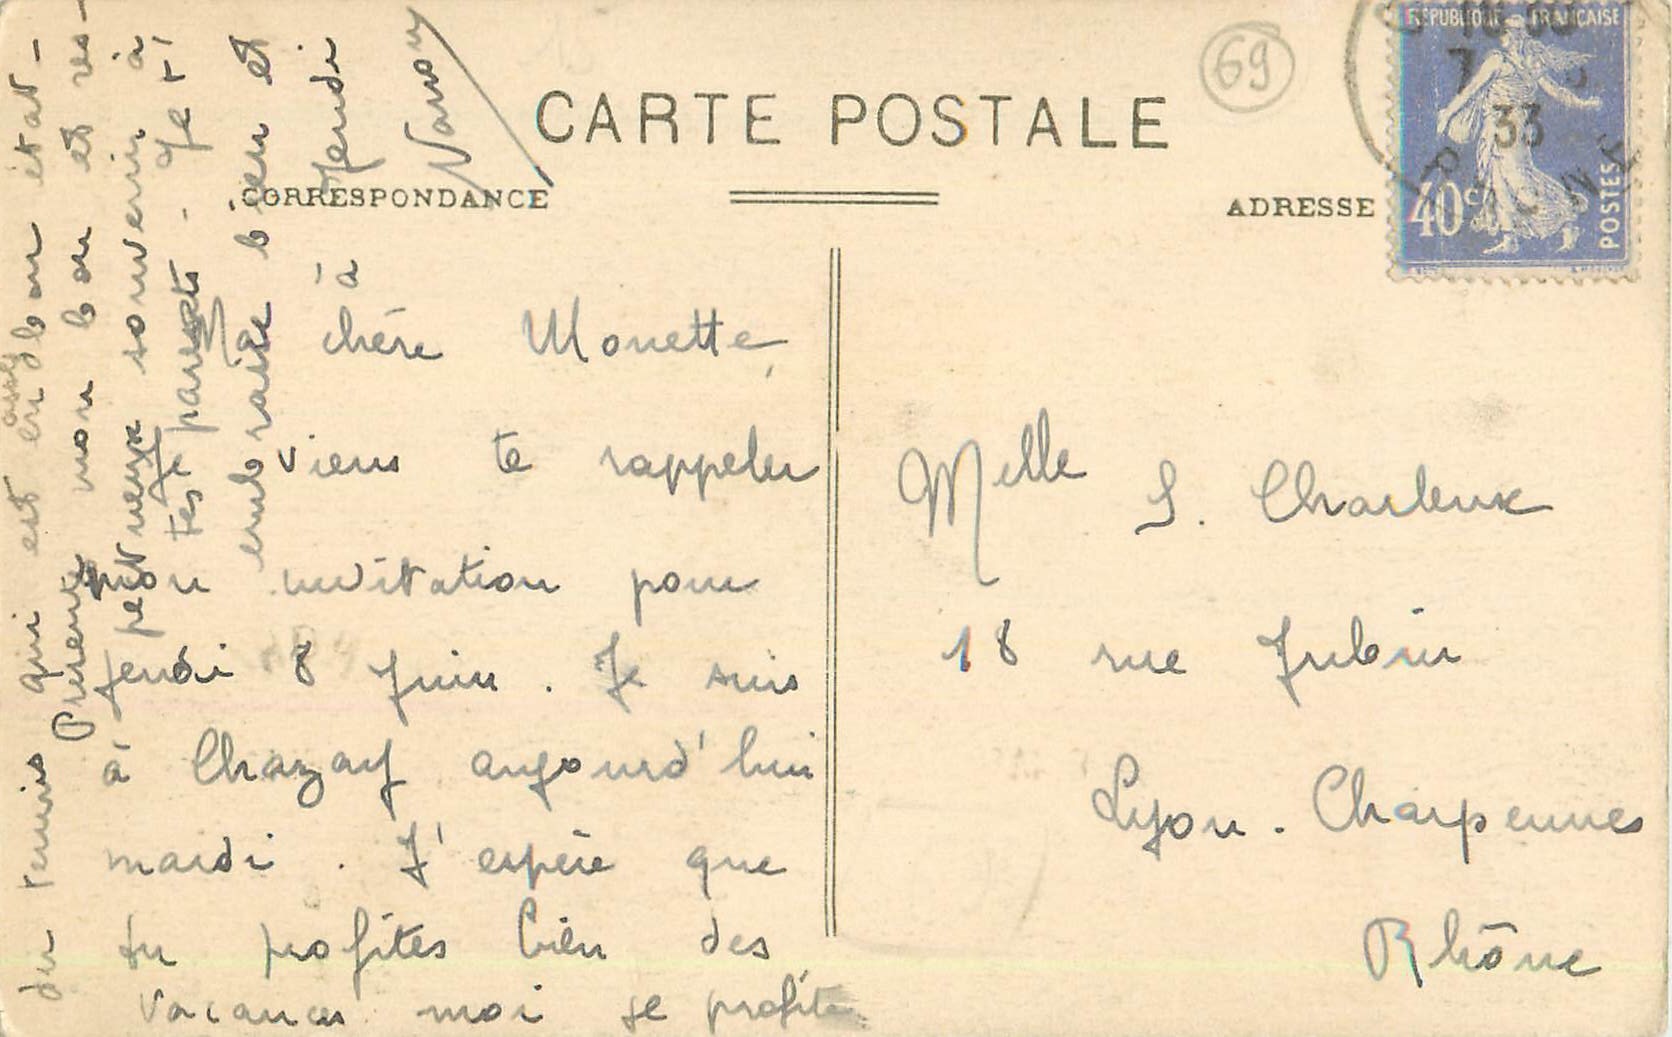 RÉPUBLIQUE FRANÇAISE
33
40c
POSTES
69
CARTE POSTALE
CORRESPONDANCE
ADRESSE
Ma chère Monette,
Je viens te rappeler
mon invitation pour
jeudi 8 Juin. Je suis
à Chazay aujourd'hui
mardi. J'espère que
tu profites bien des
vacances moi je profite
du tennis qui est en bon état -
assez
Présente mon bon et res-
pectueux souvenir à
tes parents - Je t'
embrasse bien et
à Jeudi
Melle S. Charleux
18 rue Jubin
Lyon. Charpennes
Rhône